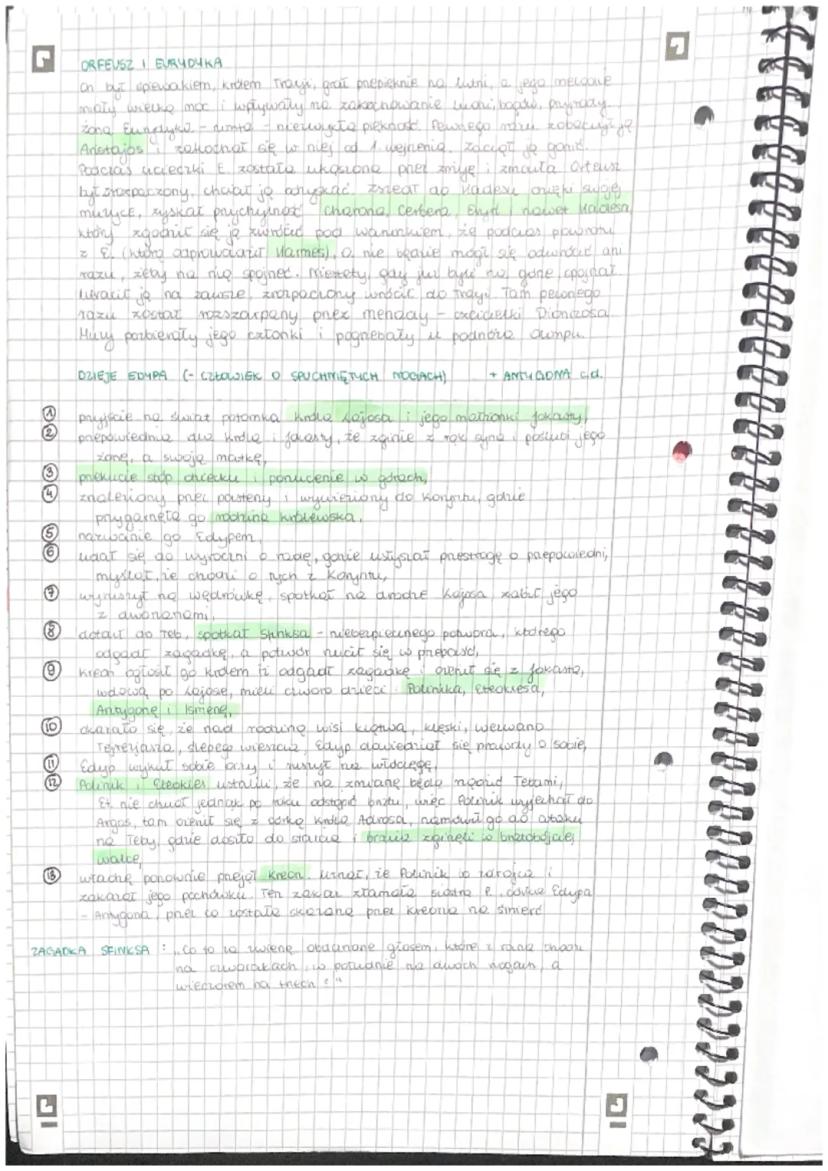 ORFEUSZ I EURYDYKA
On był śpiewakiem, królem Tracji, grał przepięknie na lutni, a jego melodie
miały wielką moc i wpływały na zakochowanie ludzi, bogów, przyrody.
żona Eurydyka - nimfa - niezwykła piękność. Pewnego razu zobaczył ją
Aristajos i zakochał się w niej od 1. wejrzenia. Zaczął ją gonić.
Podczas ucieczki E. została ukąszona przez żmiję i zmarła. Orfeusz
był zrozpaczony, chciał ją odzyskać. Zszedł do Hadesu dzięki swojej
muzyce, zyskał przychylność Charona, Cerbera, Eryd i nawet Hadesa,
który zgodził się ją zwrócić pod warunkiem, że podczas powrotu
z E. (którą odprowadzał Hermes), O. nie będzie mógł się odwrócić ani
razu, żeby na nią spojrzeć. Niestety, gdy już byli na górze spojrzał.
Utracił ją na zawsze, zrozpaczony wrócił do Tracji. Tam pewnego
razu został rozszarpany przez menady - czcicielki Dionizosa.
Muzy pozbierały jego członki i pogrzebały u podnóża Olimpu.
DZIEJE EDYPA (- CZŁOWIEK O SPUCHNIĘTYCH NOGACH) + ANTYGONA c.d.
1 przyjście na świat potomka króla Lajosa i jego małżonki Jokasty,
2 przepowiednia dla króla i Jokasty, że zginie z rąk syna i poślubi jego
żonę, a swoją matkę,
3 przekucie stóp dziecku i porzucenie w górach,
4 znaleziony przez pasterzy i wywieziony do Koryntu, gdzie
przygarnęła go rodzina królewska,
5 nazwanie go Edypem,
6 udał się do wyroczni o radę, gdzie usłyszał przestrogę o przepowiedni,
myślał, że chodzi o tych z Koryntu,
7 wyruszył na wędrówkę, spotkał na drodze Lajosa, zabił jego
z dworzanami,
8 dotarł do Teb, spotkał Sfinksa - niebezpiecznego potwora, którego
odgadł zagadkę, a potwór rzucił się w przepaść,
9 Kreon ogłosił go królem tj. odgadł zagadkę i ożenił się z Jokastą,
wdową po Lajosie, mieli czworo dzieci: Polinika, Eteoklesa,
Antygonę i Ismenę,
10 okazało się, że nad rodziną wisi klątwa, klęski, wezwano
Tejrezjasza, ślepego wieszcza, Edyp dowiedział się prawdy o sobie,
11 Edyp wykuł sobie oczy i ruszył na włóczęgę,
12 Polinik i Eteokles ustalili, że na zmianę będą rządzić Tebami,
Et. nie chciał jednak po roku odstąpić bratu, więc Polinik wyjechał do
Argos, tam ożenił się z córką króla Adrosa, namówił go do ataku
na Teby, gdzie doszło do starcia i bracia zginęli w bratobójczej
walce,
13 władzę ponownie przejął Kreon. uznał, że Polinik to zdrajca i
zakazał jego pochówku. Ten zakaz złamała siostra P. córka Edypa
- Antygona, przez co została skazana przez Kreona na śmierć
ZAGADKA SFINKSA : "Co to za zwierzę, obdarzone głosem, które z rana chodzi
na czworakach, w południe na dwóch nogach, a
wieczorem na trzech?"